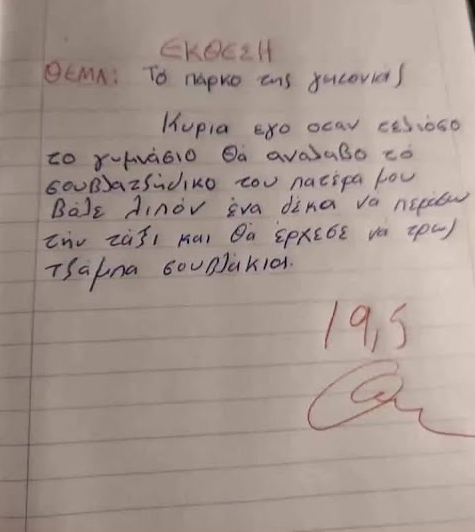 ΕΚΘΕΣΗ
ΘΕΜΑ: Το πάρκο της γητονιάς
Κυρία εγο οταν τελιόσο
το γυμνάσιο θά αναλαβο τό
σουβλατζήδικο του πατέρα μου
Βάλε λιπόν ένα δέκα να περάσω
τήν τάξι και θά έρχεσε νά τρως
τζάμπα σουβλάκια.
19,5